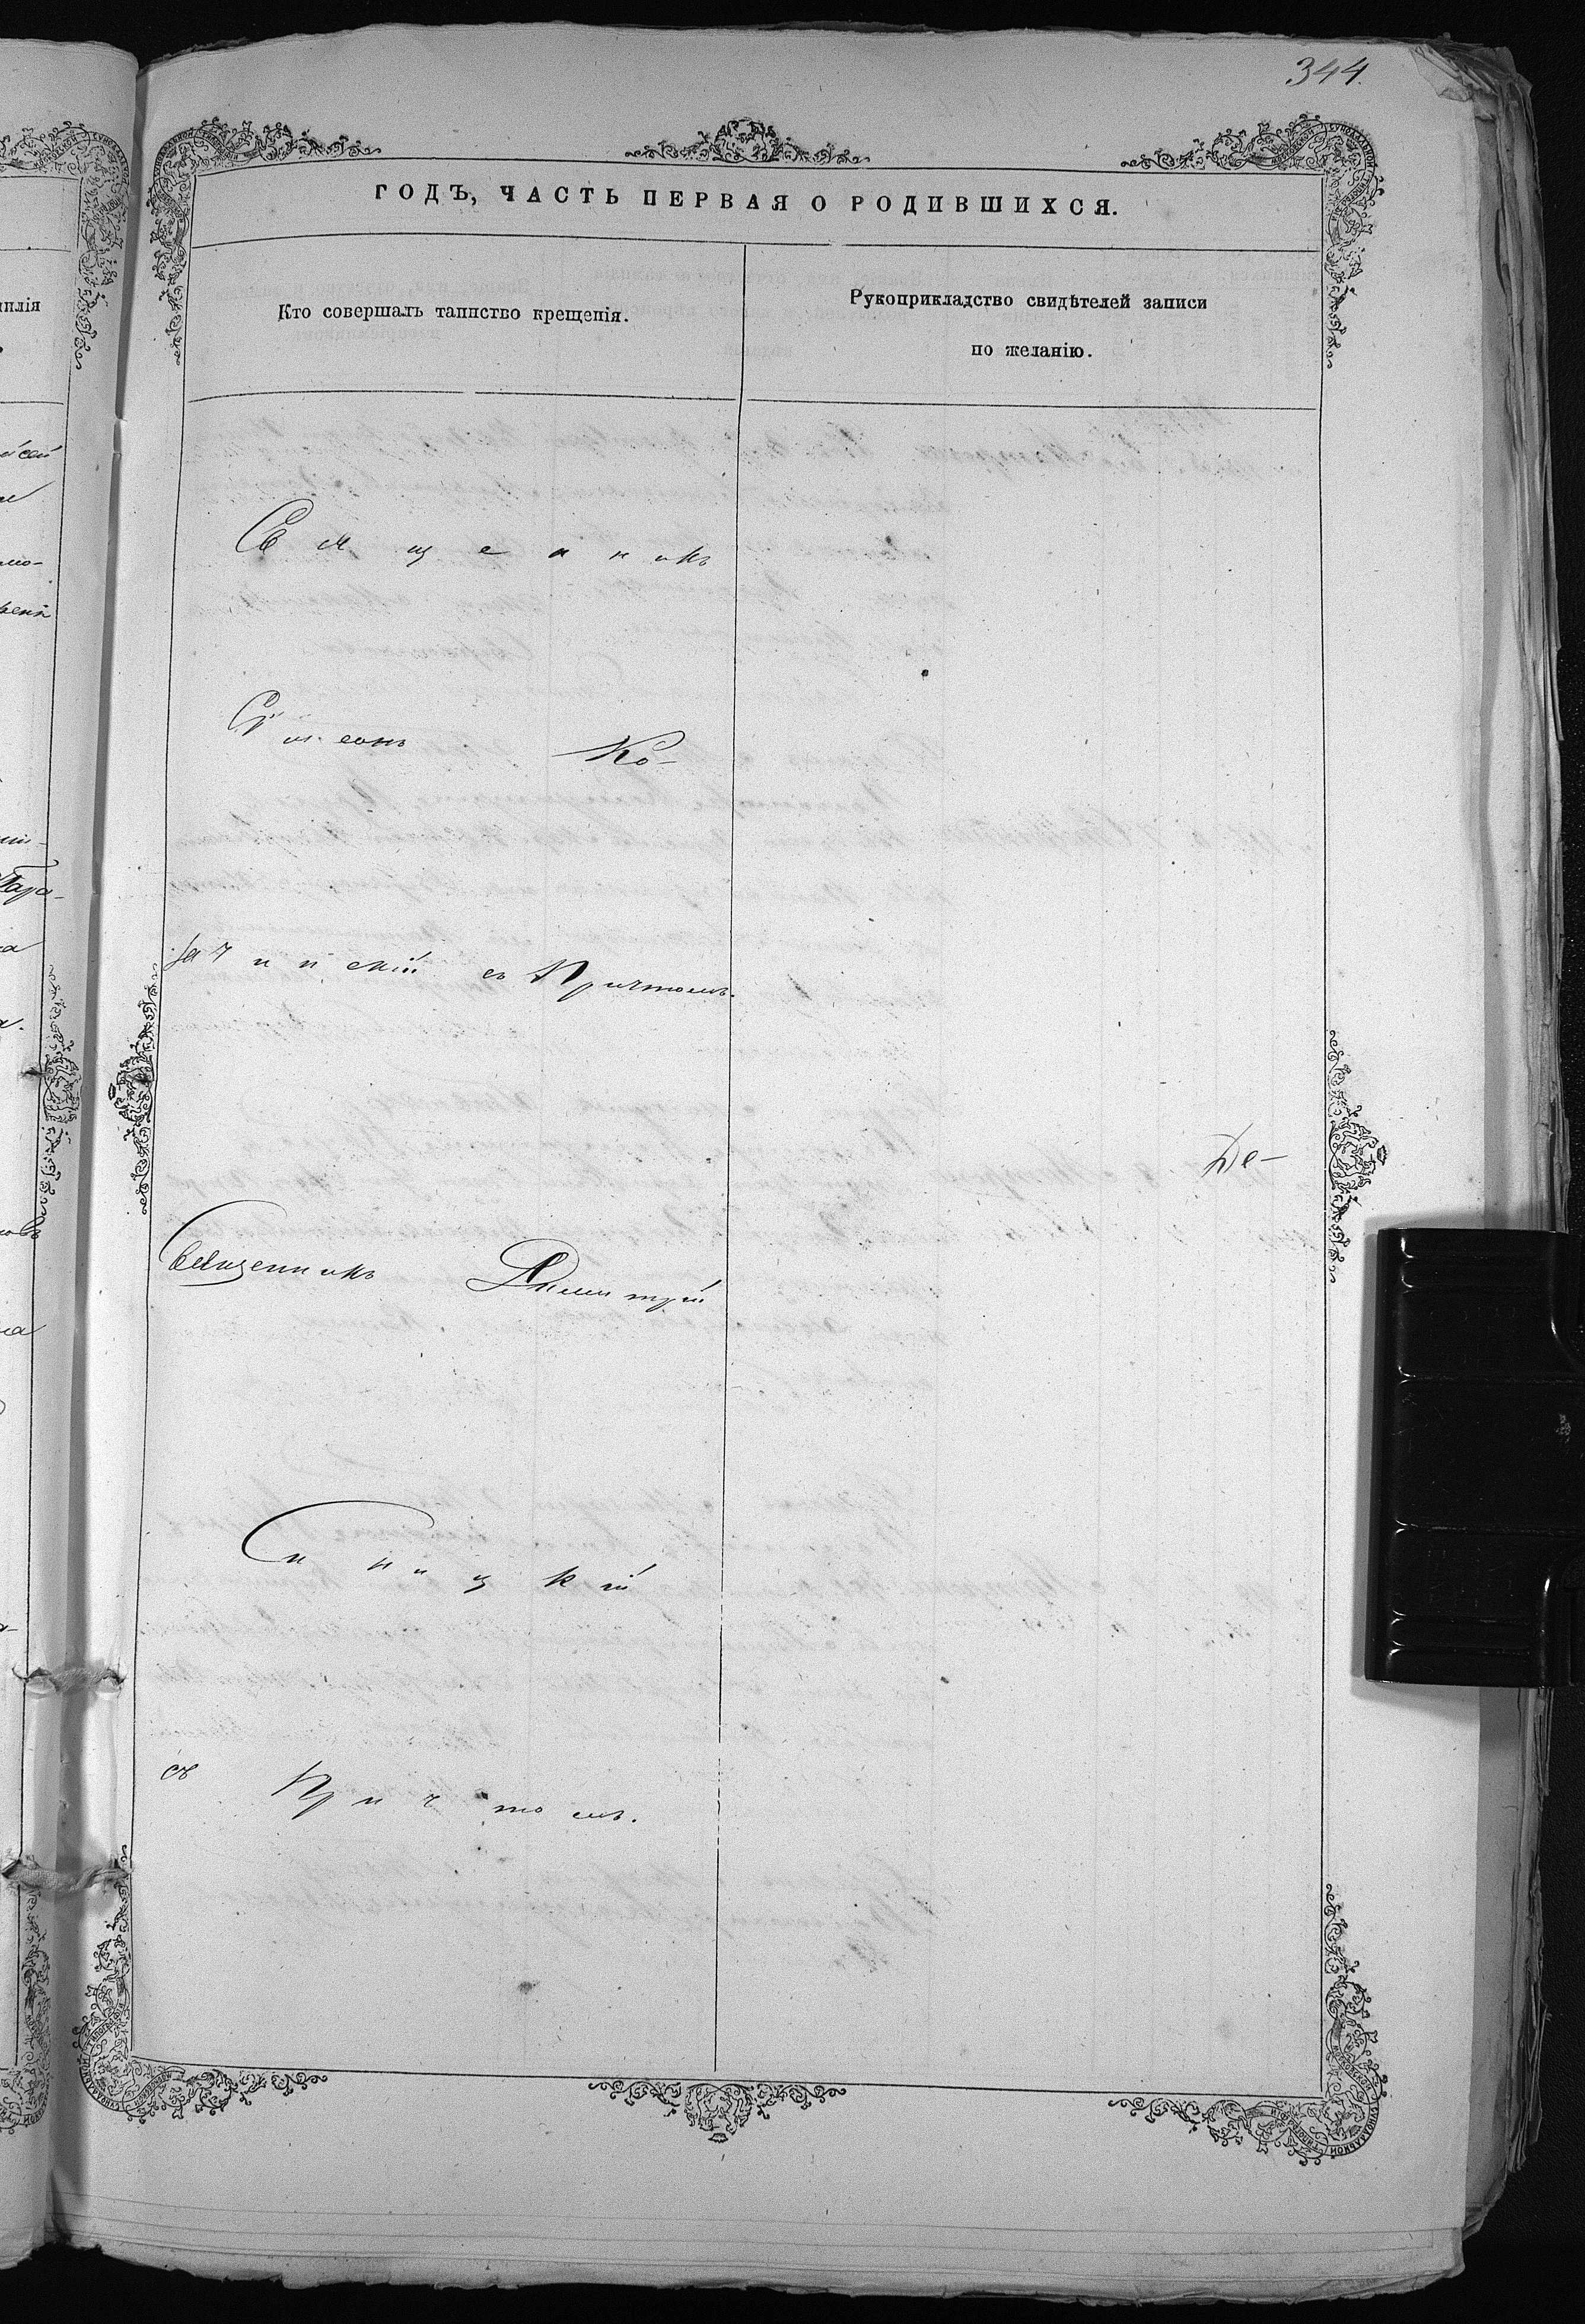 344.
ГОДЪ, ЧАСТЬ ПЕРВАЯ О РОДИВШИХСЯ.
Кто совершалъ таинство крещенія.
Рукоприкладство свидѣтелей записи
по желанію.
Священникъ
Симеонъ Ко-
зачинскій съ Причтомъ.
Де-
Священникъ Димитрій
Синицкій
съ Причтомъ.